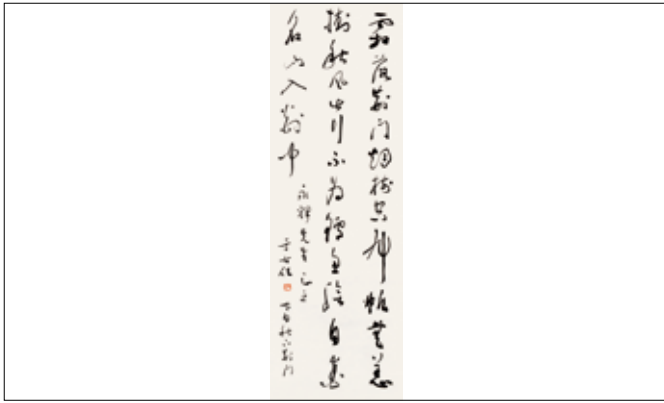 霜落荊門烟樹空布帆無恙
掛秋風此行不為鱸魚鱠自愛
名山入剡中
永祥先生正之
于右任 李白秋下荊門